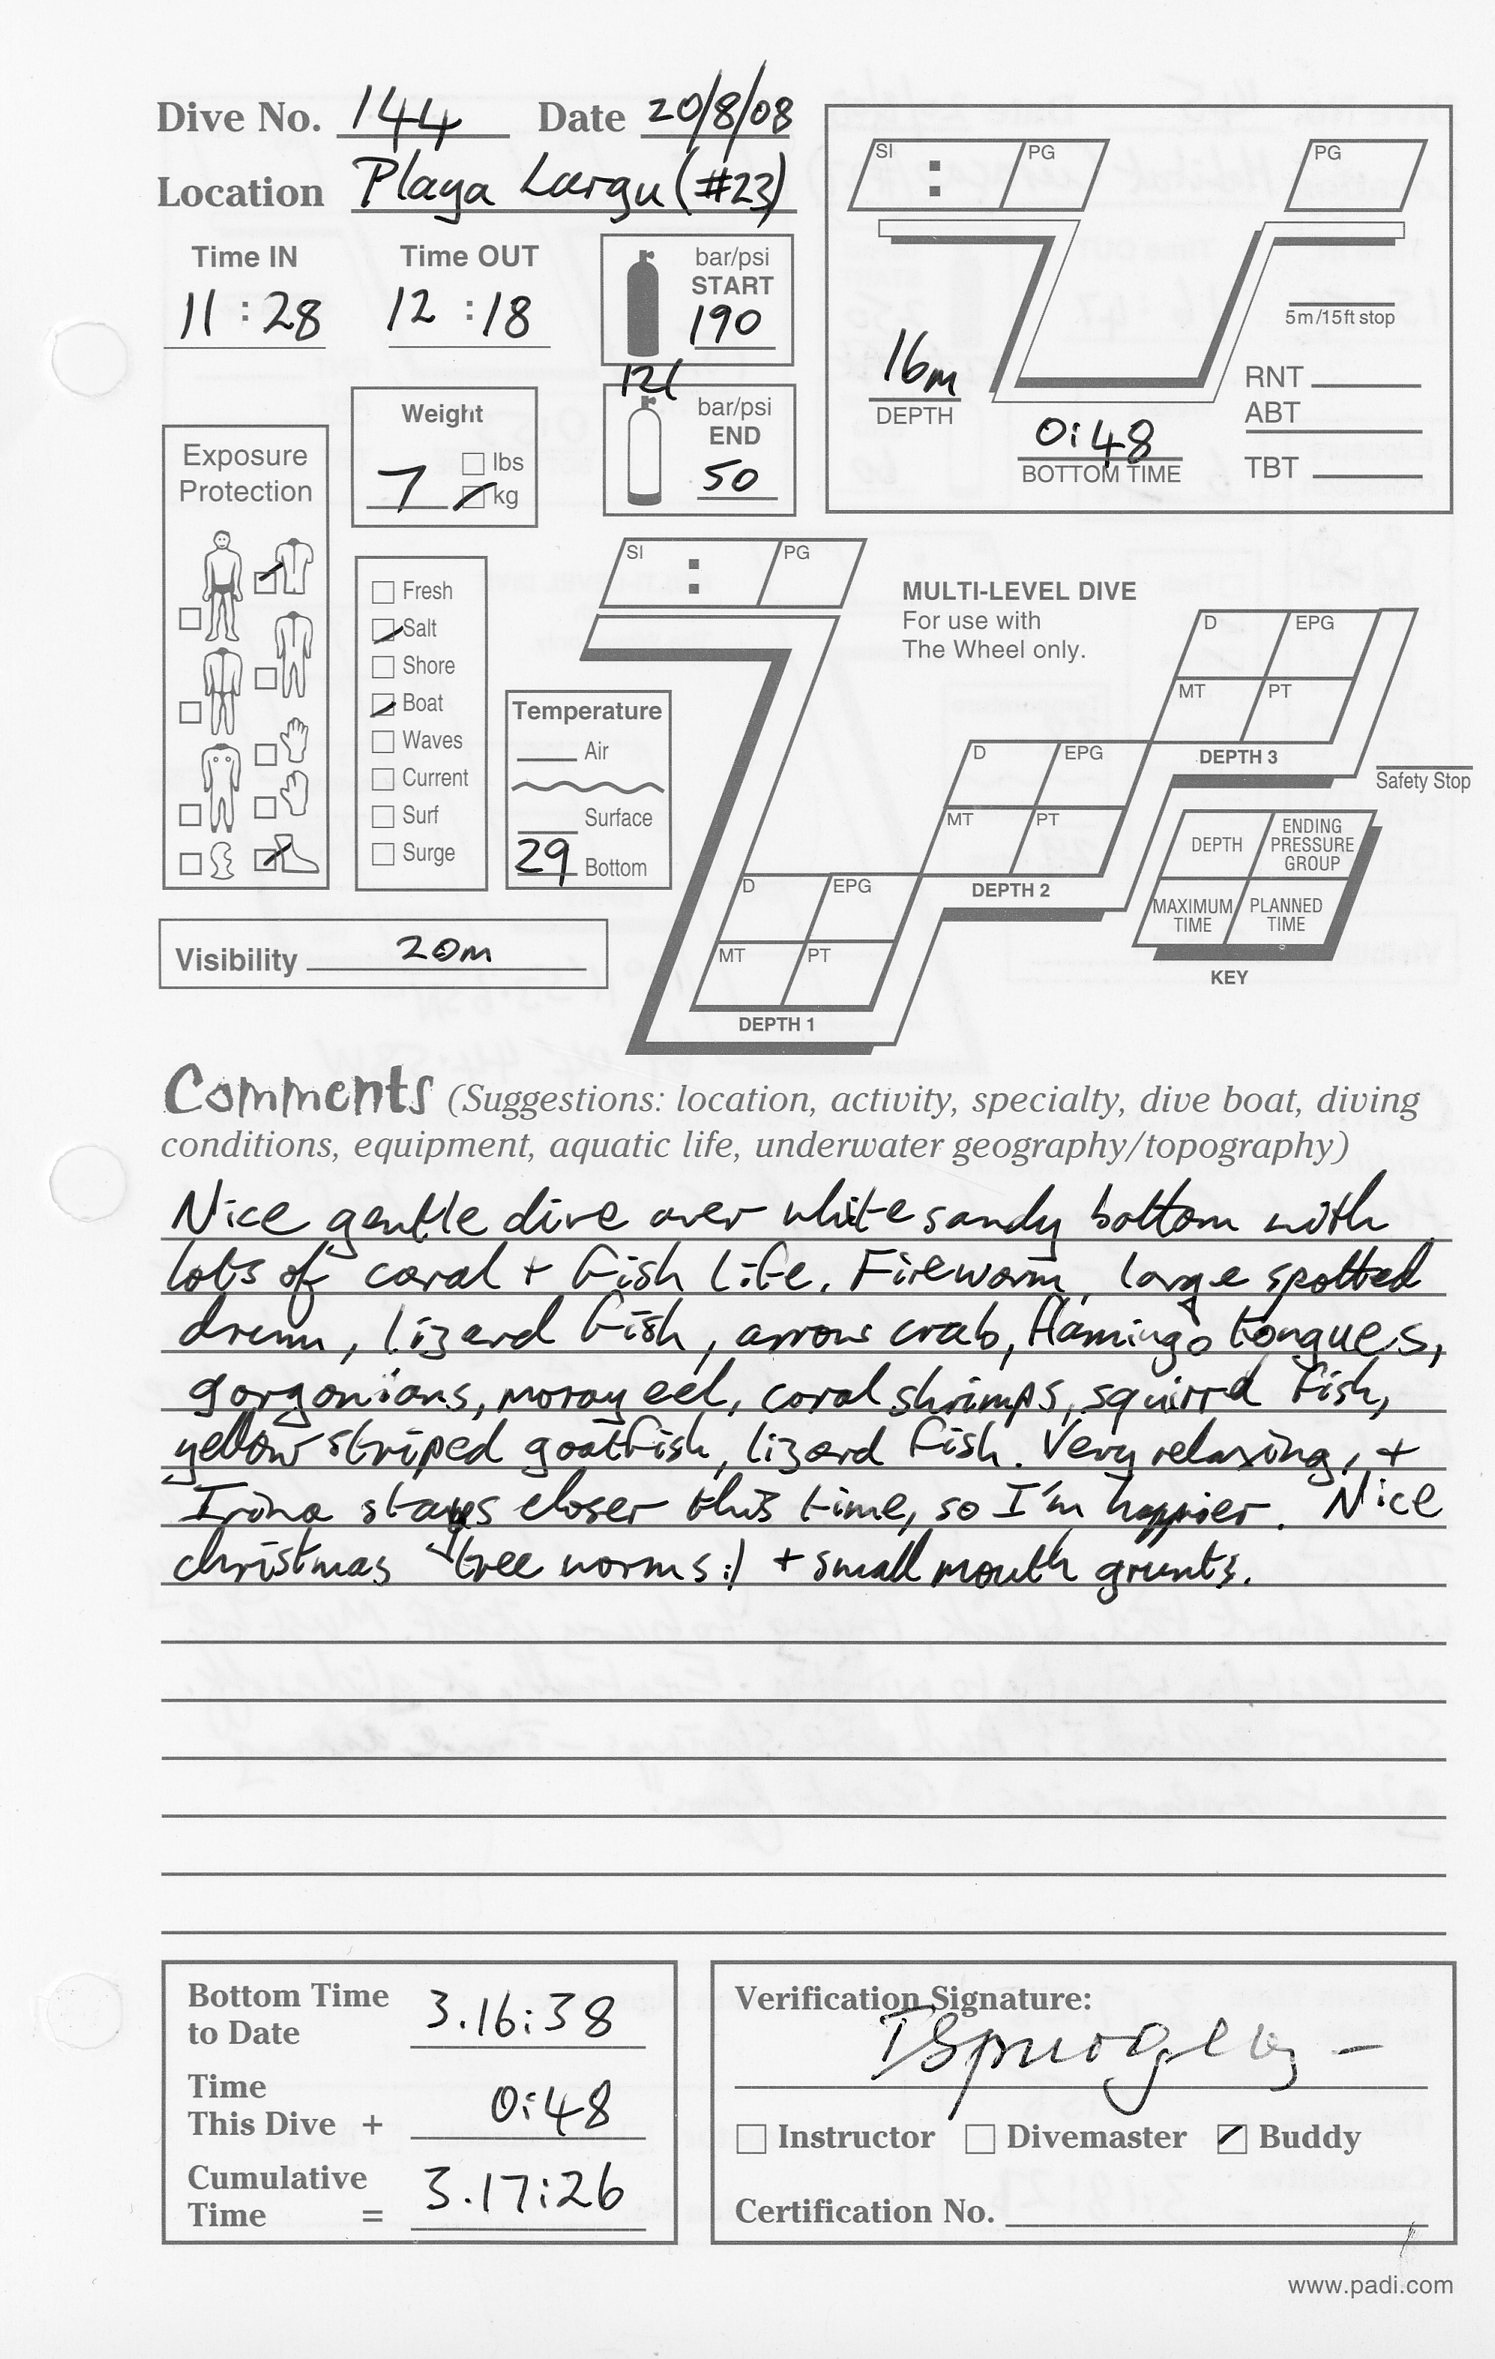 Dive No. 144 Date 20/8/08
Location Playa Larga (#23)
Time IN Time OUT
11 : 28 12 : 18
bar/psi
START
190
12l
bar/psi
END
50
Weight
7 lbs
kg
Exposure
Protection
Fresh
Salt
Shore
Boat
Waves
Current
Surf
Surge
Temperature
Air
Surface
29 Bottom
Visibility 20m
SI : PG PG
16m
DEPTH
0:48
BOTTOM TIME
5m/15ft stop
RNT
ABT
TBT
SI : PG
MULTI-LEVEL DIVE
For use with
The Wheel only.
D EPG
MT PT
DEPTH 1
D EPG
MT PT
DEPTH 2
D EPG
MT PT
DEPTH 3
Safety Stop
DEPTH ENDING PRESSURE GROUP
MAXIMUM TIME PLANNED TIME
KEY
Comments (Suggestions: location, activity, specialty, dive boat, diving
conditions, equipment, aquatic life, underwater geography/topography)
Nice gentle dive over white sandy bottom with
lots of coral + fish life. Fireworm, large spotted
drum, lizard fish, arrow crab, flamingo tongues,
gorgonians, moray eel, coral shrimps, squirrel fish,
yellow striped goatfish, lizard fish. Very relaxing, +
Irina stays closer this time, so I'm happier. Nice
christmas tree worms :) + small mouth grunts.
Bottom Time
to Date 3.16:38
Time
This Dive + 0:48
Cumulative
Time = 3.17:26
Verification Signature:
Instructor Divemaster Buddy
Certification No.
www.padi.com